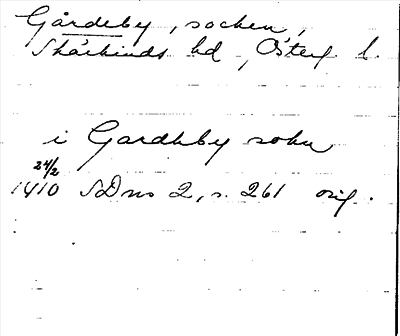 Gårdeby, socken,
Skärkinds hd, Österg l.
i Gardhby sokn
24/2
1410 SDns 2, s. 261 orig.